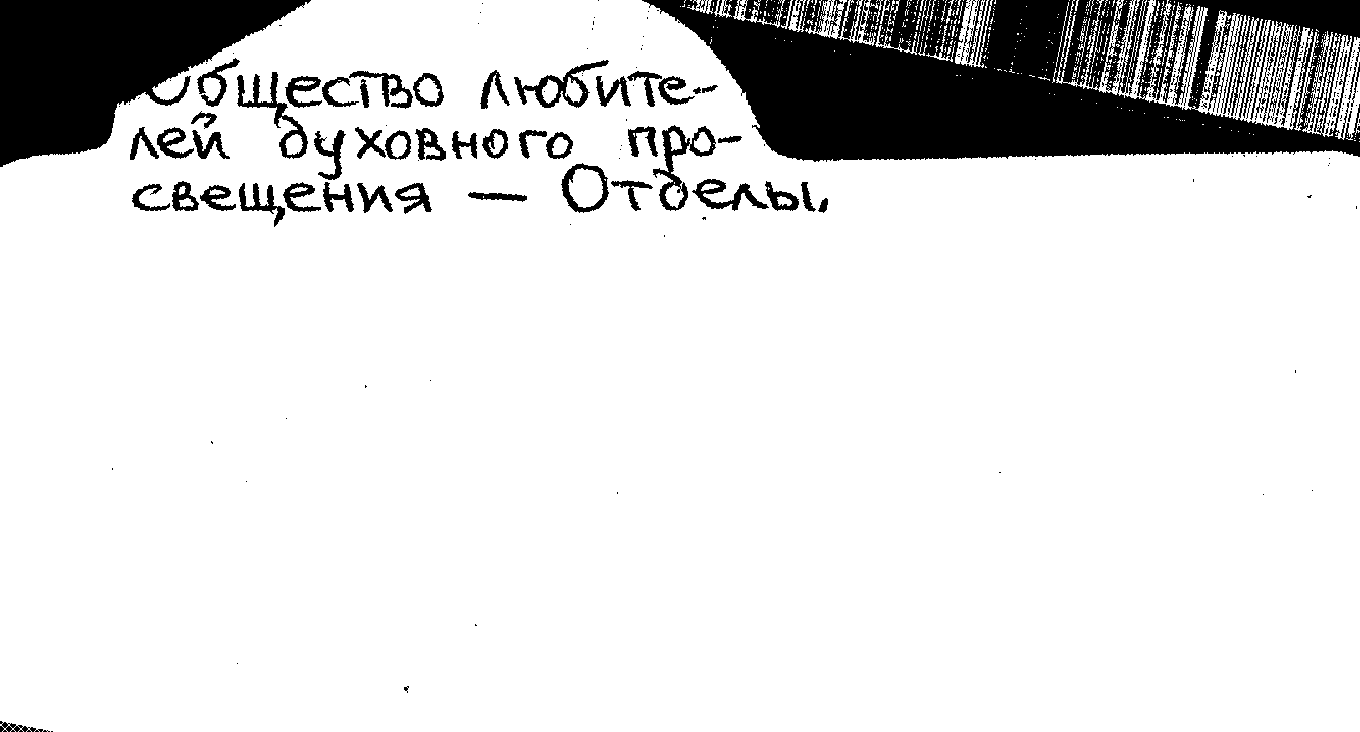 Общество любите-
лей духовного про-
свещения — Отделы.